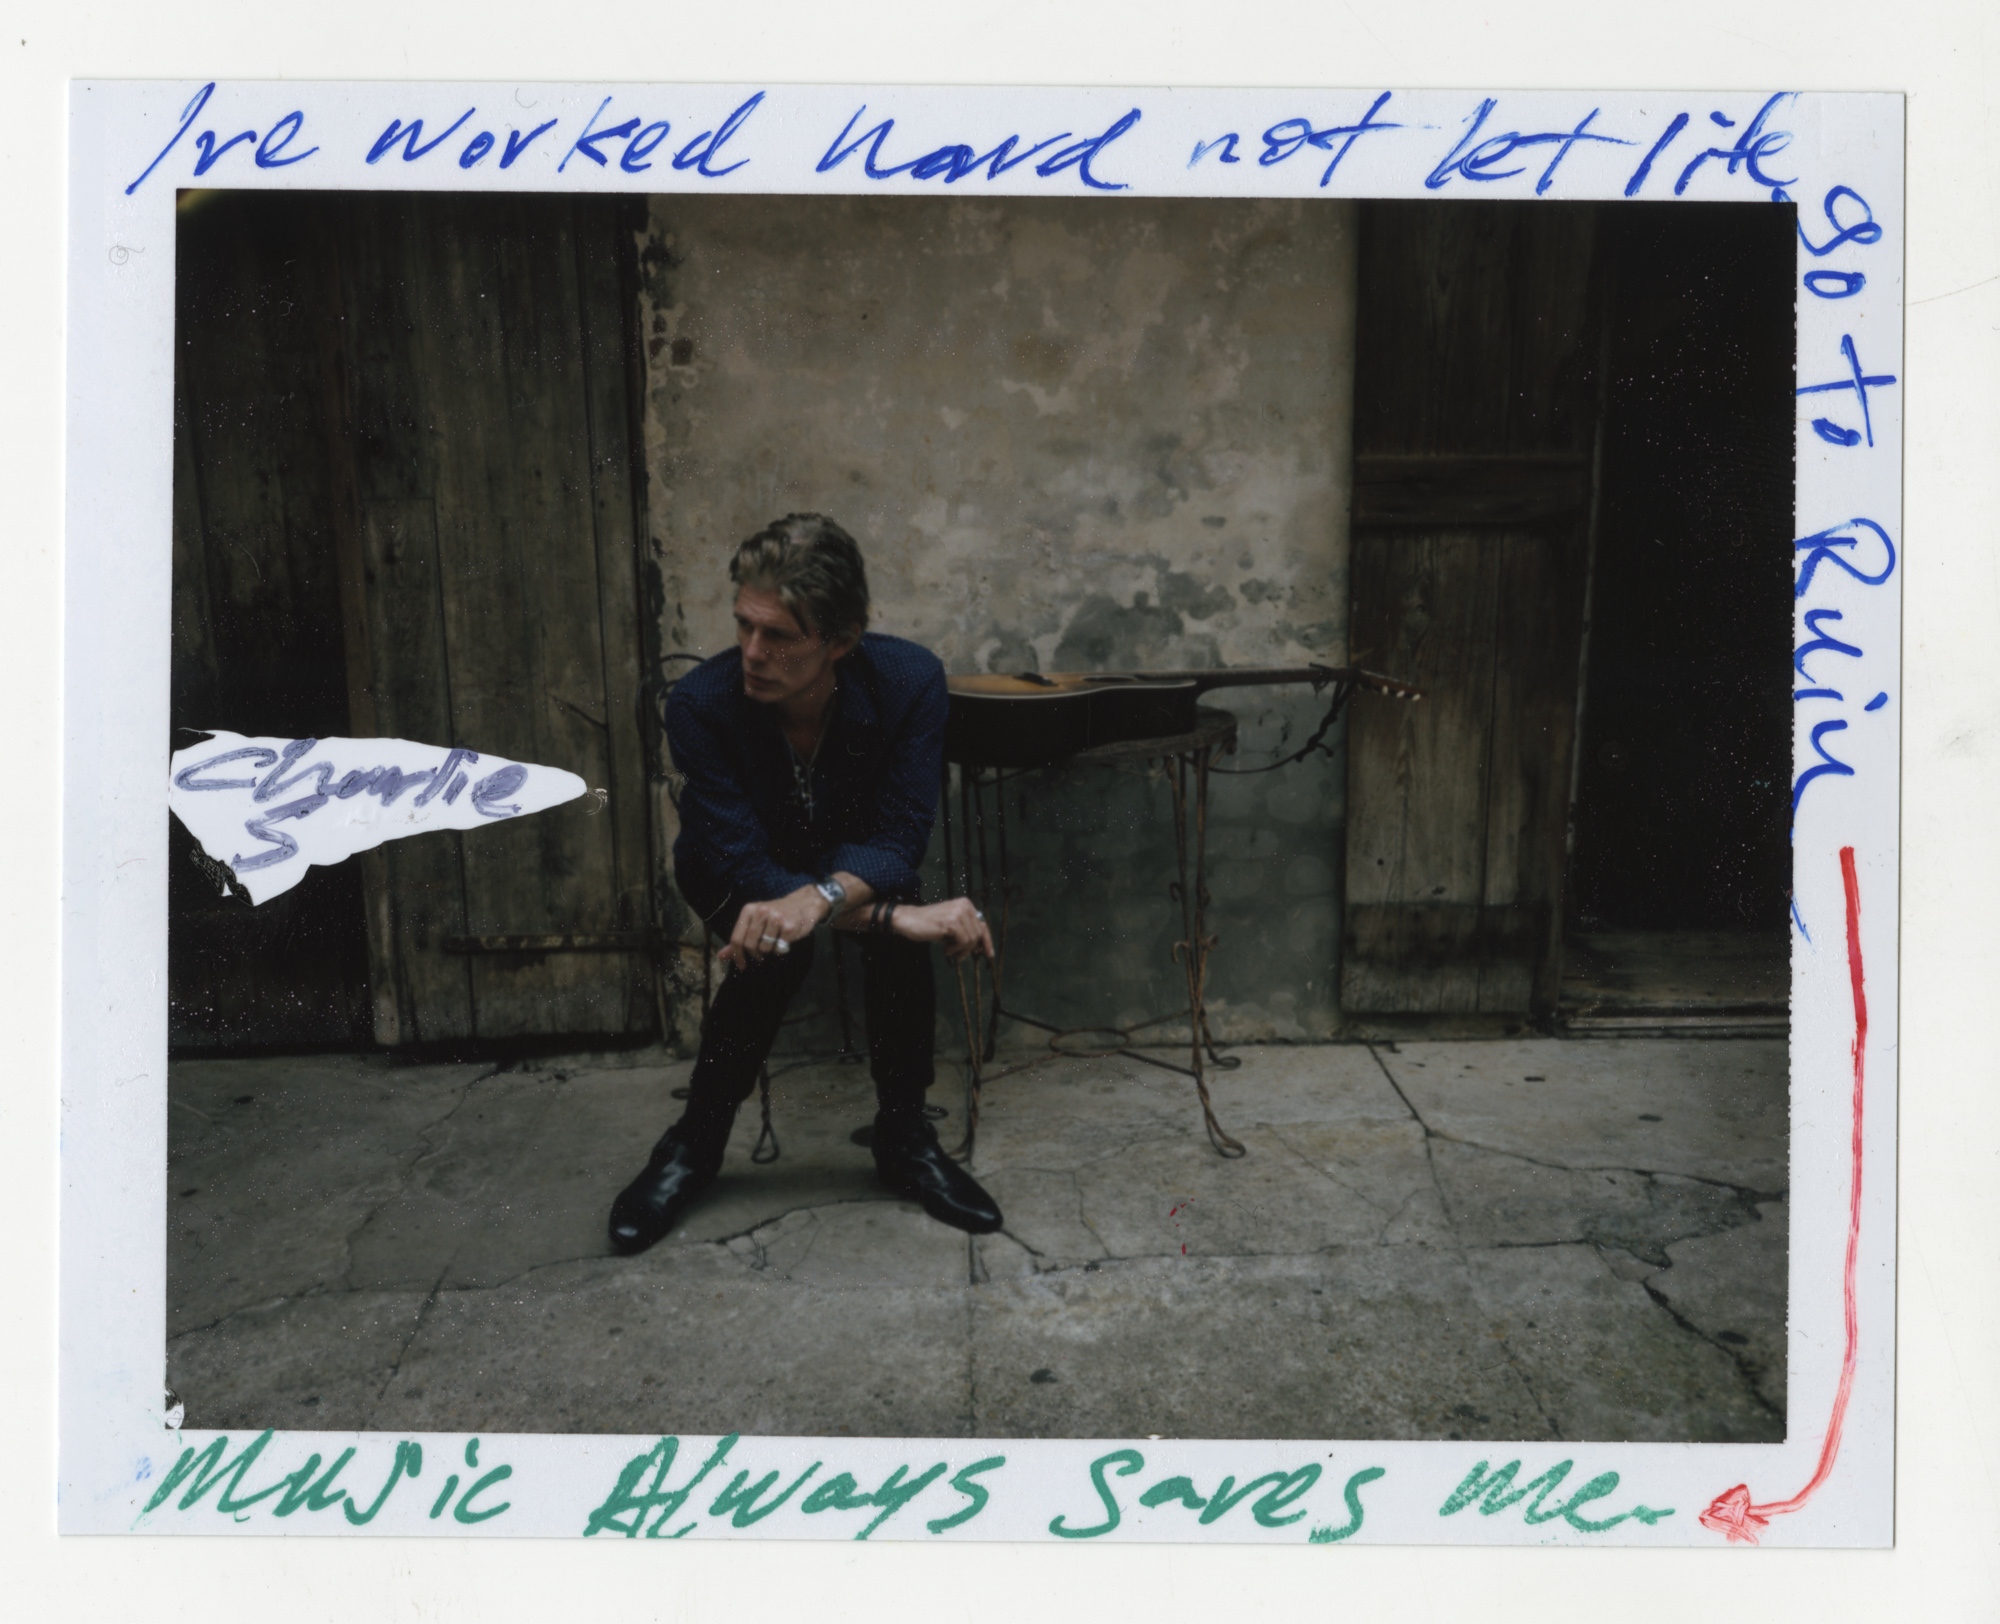 I've worked hard not let life
go to Ruin
Charlie
S
Music Always Saves me.